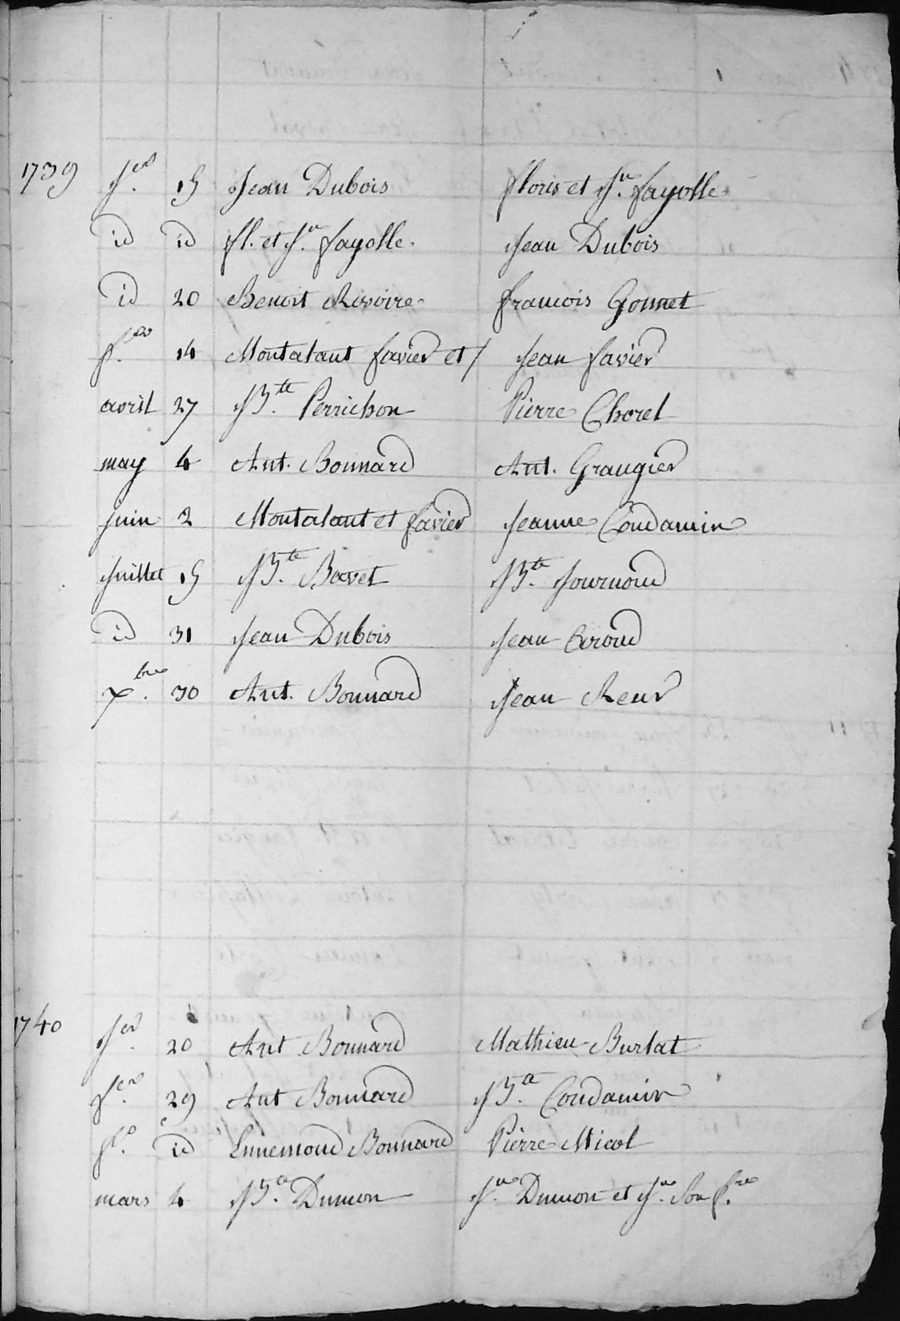 1739 Jer. 15 Jean Dubois floris et Jn. fayolle
id id fl. et Jn. fayolle. Jean Dubois
id 20 Benoit Rivoire francois Gonnet
fer. 14 Montalant favier et / Jean favier
avril 27 JBte. Perrichon Pierre Chorel
may 4 Ant. Bonnard Ant. Graugier
juin 2 Montalant et favier Jeanne Condamin
Juillet 15 JBte. Bavet JBte. Journoud
id 31 Jean Dubois Jean Giroud
Xbre. 30 Ant. Bonnard Jean Reur
1740 Jer. 20 Ant Bonnard Mathieu Burlat
Jer. 29 Ant Bonnard JBte. Condamin
fer. id Ennemond Bonnard Pierre Micol
mars 4 JBte. Dumon Jne. Dumon et Jn. son fre.